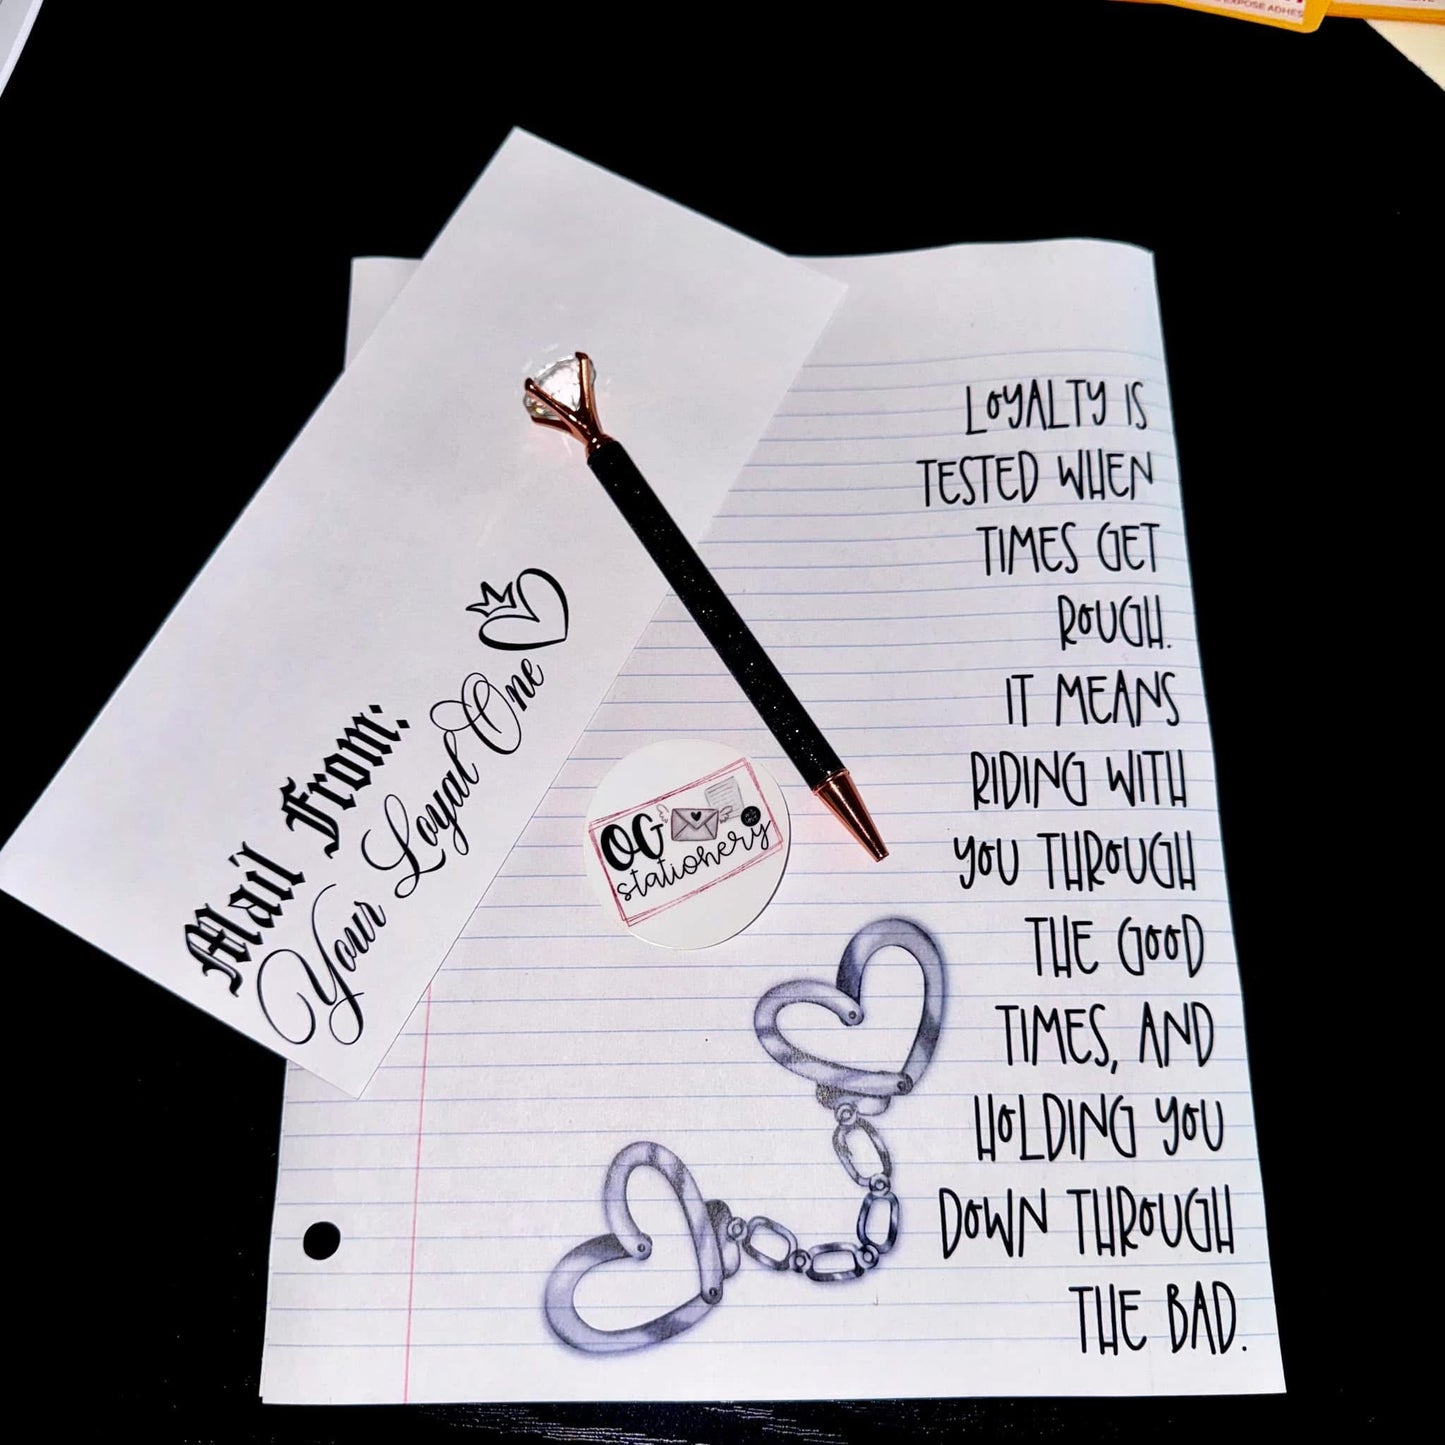 Mail From:
Your Loyal One
OG
stationery
LOYALTY IS
TESTED WHEN
TIMES GET
ROUGH.
IT MEANS
RIDING WITH
YOU THROUGH
THE GOOD
TIMES, AND
HOLDING YOU
DOWN THROUGH
THE BAD.
EXPOSE ADHES